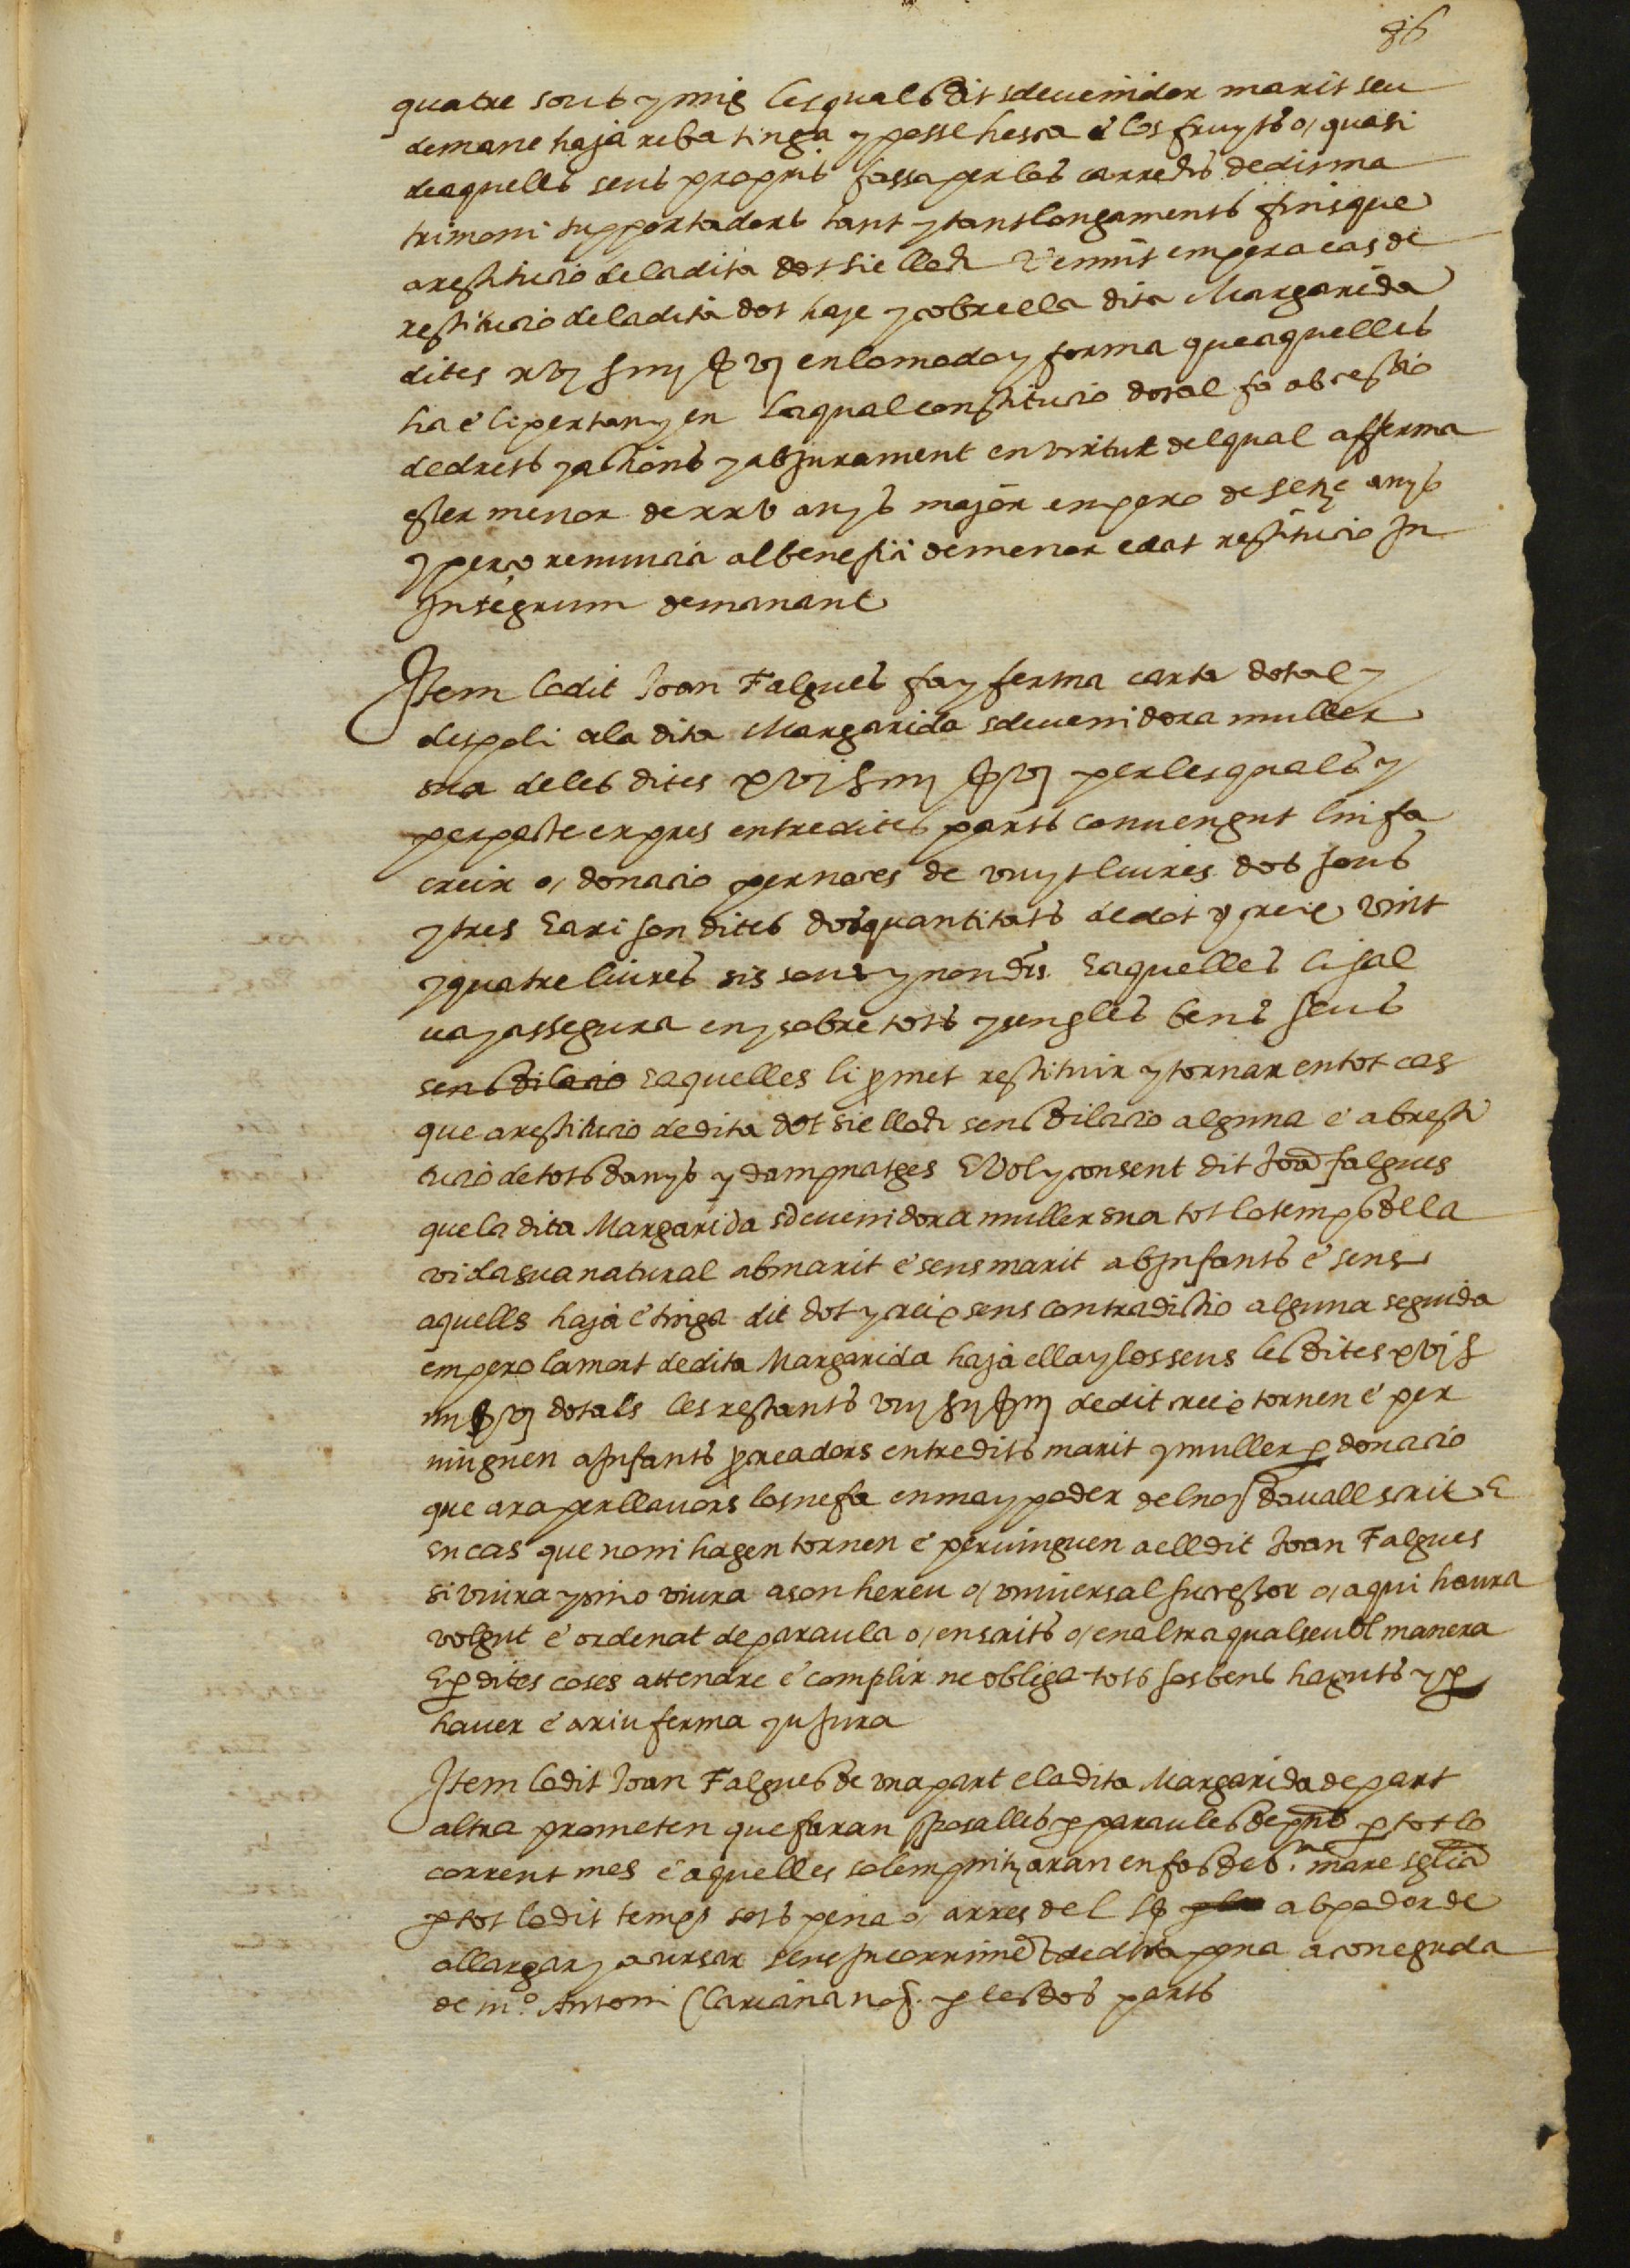 86
quatre sous y mig lesquals dit sdevenidor marit seu
demane haja reba tinga y possehesca e los fruyts o, quasi
de aquells seus propris fassa per los carrechs de dit ma
trimoni supportadors tant y tant longament fins que
a restitucio de la dita dot sie lloch Venint empero cas de
restitucio de la dita dot haje y cobre ella dita Margarida
dites xvj ℔ iiij ss vj en lo modo y forma que aquelles
ha e li pertanyen La qual constitucio dotal fa ab cessio
de drets y actions y ab jurament en virtut del qual afferma
esser menor de xxv anys major empero de setze anys
y per ço renuncia al benefici de menor edat restitucio In
Integrum demanant
Item lo dit Joan Falgues fa y ferma carta dotal y
despoli a la dita Margarida sdevenidora muller
sua de les dites xvj ℔ iiij ss vj per les quals y
per pacte expres entre dites parts convengut lin fa
creix o, donacio per noces de vuyt liures dos sous
y tres E axi son dites dos quantitats de dot y creix vint
y quatre liures sis sous y nou drs. E aquelles li sal
va y assegura en y sobre tots y sengles bens seus
sens dilacio E aquelles li pmet restituir y tornar en tot cas
que a restitucio de dita dot sie lloch sens dilacio alguna e ab resti
tucio de tots danys y dampnatges E Vol y consent dit Joa falgues
que la dita Margarida sdevenidora muller sua tot lo temps de la
vida sua natural ab marit e sens marit ab Infants e sens
aquells haja e tinga dit dot y creix sens contradictio alguna seguida
empero la mort de dita Margarida haja ella y los seus les dites xvj ℔
iiij ss vj dotals les restants viij ℔ ij ss iij de dit creix tornen e per
vinguen a Infants pcreadors entre dits marit y muller p donacio
que ara per llavors los ne fa en ma y poder del not davall scrit E
En cas que noni hagen tornen e pervinguen a ell dit Joan Falgues
si viura y si no viura a son hereu o, universal successor o, a qui haura
volgut e ordenat de paraula o, en scrits o, en altra qualsevol manera
E p dites coses attendre e complir ne obliga tots sos bens haguts y p
haver e axiu ferma y u jura
Item lo dit Joan Falgues de una part e la dita Margarida de part
altra prometen que faran sposalles p paraules de pnt p tot lo
corrent mes e aquelles solempnitzaran en fas de Sta mare sglia
p tot lo dit temps sots pena o, arres de L ss ab poder de
allargar y acursar sens Incorriment de dita pena a coneguda
de mo. Antoni Clariana not. p les dos parts